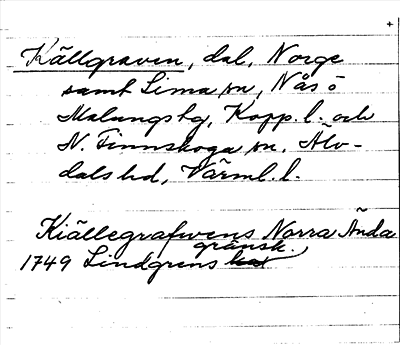 +
Källgraven, dal, Norge
samt Lima sn, Nås o
Malungs tg, Kopp. l. och
N. Finnskoga sn. Älv-
dals hd, Värml. l.
Kiällegrafwens Norra Ända
gränsk.
1749 Lindgrens